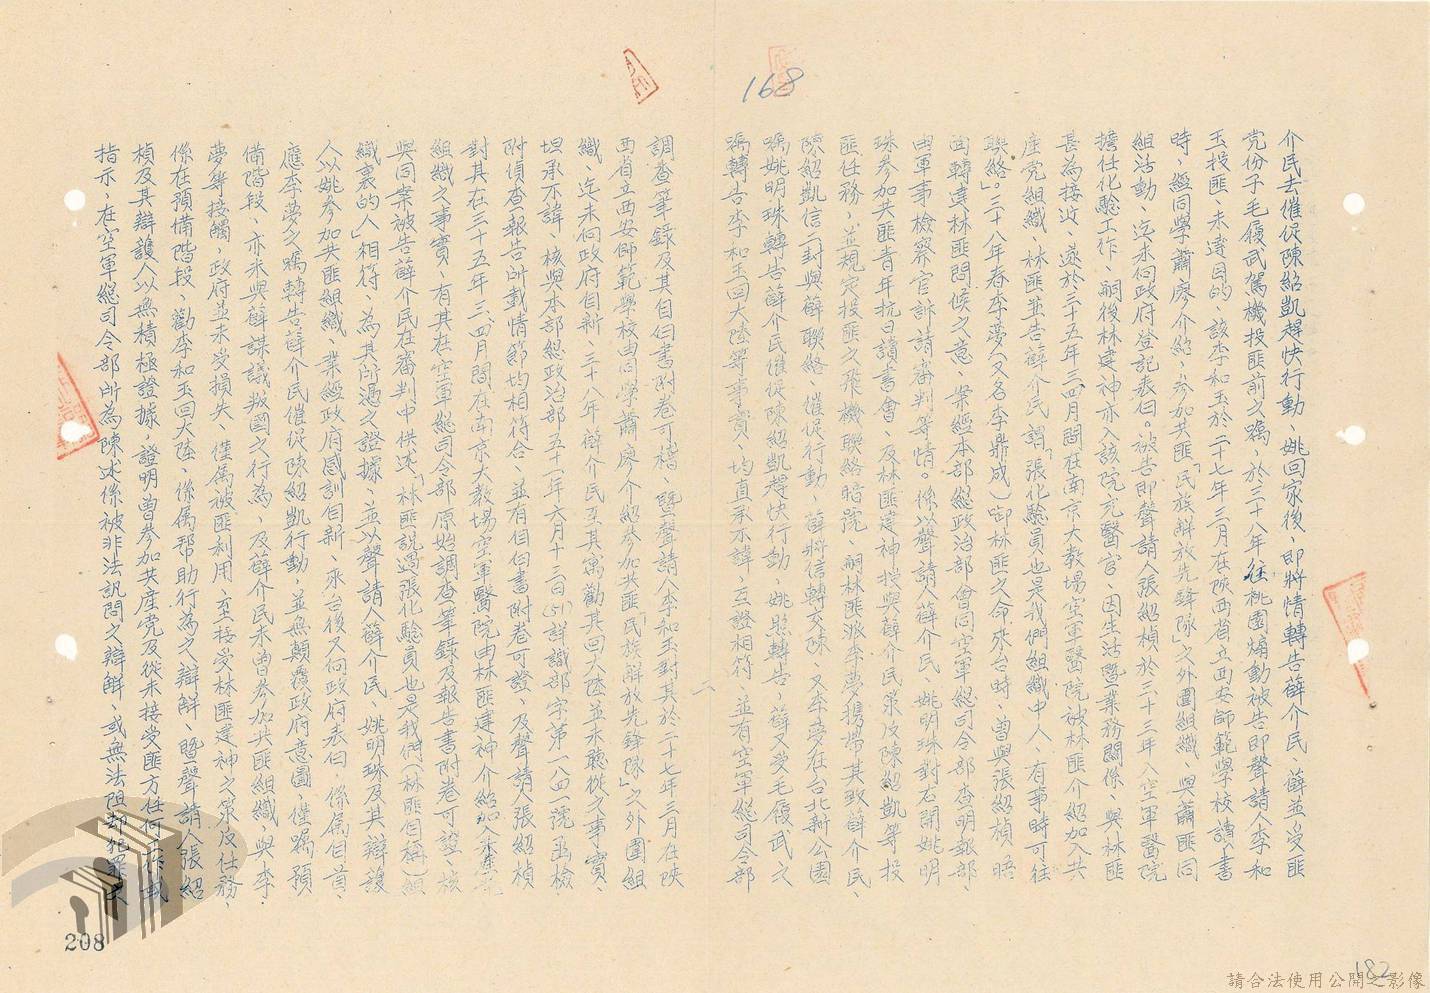 168
介民去催促陳紹凱趕快行動、姚回家後、即將情轉告薛介民、薛並受匪
党份子毛履武駕機投匪前之囑、於三十八年往桃園煽動被告即聲請人李和
玉投匪、未達目的、該李和玉於二十七年三月在陝西省立西安師範學校讀書
時、經同學蕭廖介紹、參加共匪「民族解放先鋒隊」之外圍組織、與蕭匪同
組活動、迄未向政府登記表白。被告即聲請人張紹楨於三十三年入空軍醫院
擔任化驗工作、嗣後林建神亦入該院充醫官、因生活暨業務關係、與林匪
甚為接近、遂於三十五年三四月間在南京大教場空軍醫院被林匪介紹加入共
產党組織、林匪並告薛介民謂「張化驗員也是我們組織中人、有事時可往
聯絡」。三十八年春李夢(又名李鼎成)啣林匪之命來台時、曾與張紹楨晤
面轉達林匪問候之意、案經本部總政治部會同空軍總司令部查明報部、
由軍事檢察官訴請審判等情。係以聲請人薛介民、姚明珠對右開姚明
珠參加共匪青年抗日讀書會、及林匪建神授與薛介民策反陳紹凱等投
匪任務、並規定投匪之飛機聯絡暗號、嗣林匪派李夢携帶其致薛介民、
陳紹凱信一封與薛聯絡、催促行動、薛將信轉交陳、又李夢在台北新公園
囑姚明珠轉告薛介民催促陳紹凱趕快行動、姚照轉告、薛又受毛履武之
囑轉告李和玉回大陸等事實、均直承不諱、互證相符、並有空軍總司令部
二
調查筆錄及其自白書附卷可稽、暨聲請人李和玉對其於二十七年三月在陝
西省立西安師範學校由同學蕭廖介紹參加共匪「民族解放先鋒隊」之外圍組
織、迄未向政府自新、三十八年薛介民至其寓勸其回大陸並未聽從之事實、
坦承不諱、核與本部總政治部五十一年六月十三日(51)詳識部字第一八四一號函檢
附偵查報告所載情節均相符合、並有自白書附卷可證、及聲請人張紹楨
對其在三十五年三、四月間在南京大教場空軍醫院由林匪建神介紹加入共匪
組織之事實、有其在空軍總司令部原始調查筆錄及報告書附卷可證、核
與同案被告薛介民在審判中供述「林匪說過張化驗員也是我們(林匪自稱)組
織裏的人」相符、為其所憑之證據、並以聲請人薛介民、姚明珠及其辯護
人以姚參加共匪組織、業經政府感訓自新、來台後又向政府表白、係屬自首、
應李夢之囑轉告薛介民催促陳紹凱行動、並無顛覆政府意圖、僅屬預
備階段、亦未與薛謀議叛國之行為、及薛介民未曾參加共匪組織、與李
夢等接觸、政府並未受損失、僅屬被匪利用、至接受林匪建神之策反任務、
係在預備階段、勸李和玉回大陸、係屬幫助行為之辯解、暨聲請人張紹
楨及其辯護人以無積極證據、證明曾參加共產党及從未接受匪方任何工作或
指示、在空軍總司令部所為陳述係被非法訊問之辯解、或無法阻却犯罪
208
182
請合法使用公開之影像